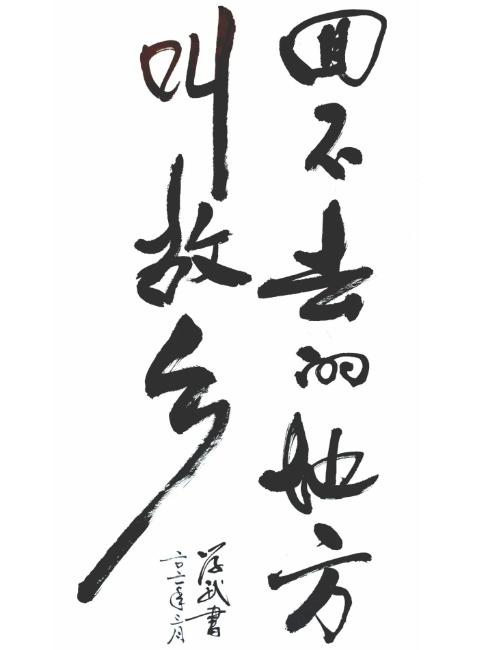 回不去的地方
叫故乡
学武書
二〇二一年三月